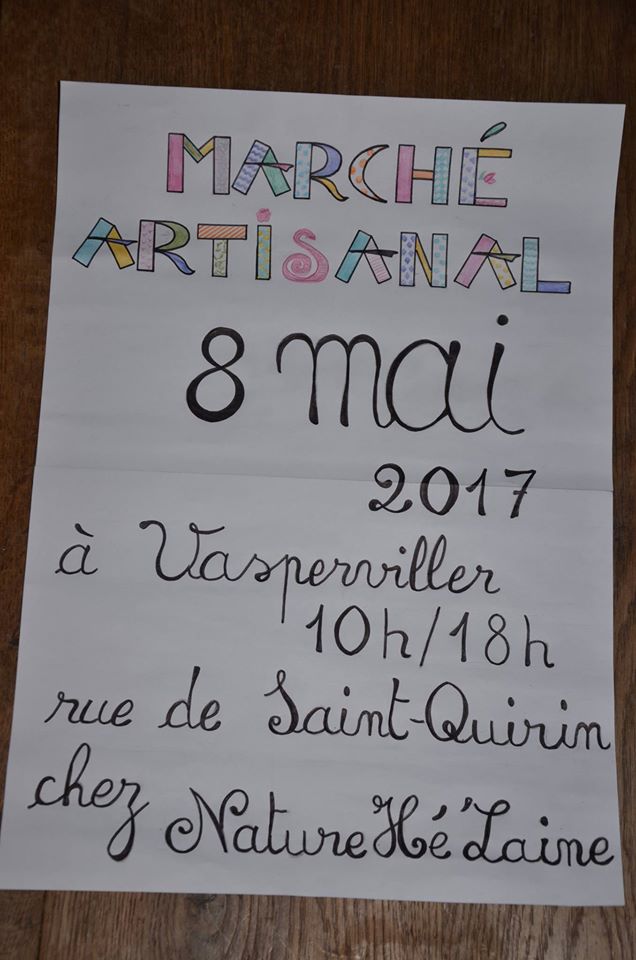 MARCHÉ
ARTiSANAL
8 mai
2017
à Vasperviller
10h/18h
rue de Saint-Quirin
chez NatureHé'Laine